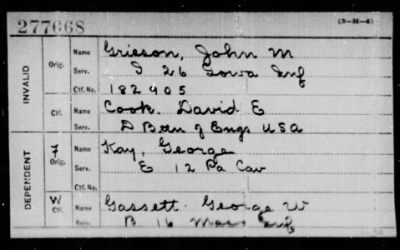 277668
(3-311)
INVALID
Orig.
Name Grieson, John M
Serv. I 26 Iowa Inf
Ctf. No. 182405
Ctf.
Name Cook. David E
Serv. D Batn of Engs USA
DEPENDENT
F
Orig.
Name Kay, George
Serv. E 12 Pa Cav
Ctf. No.
W
Ctf.
Name Gassett George W
Serv. B 16 Mass Inf